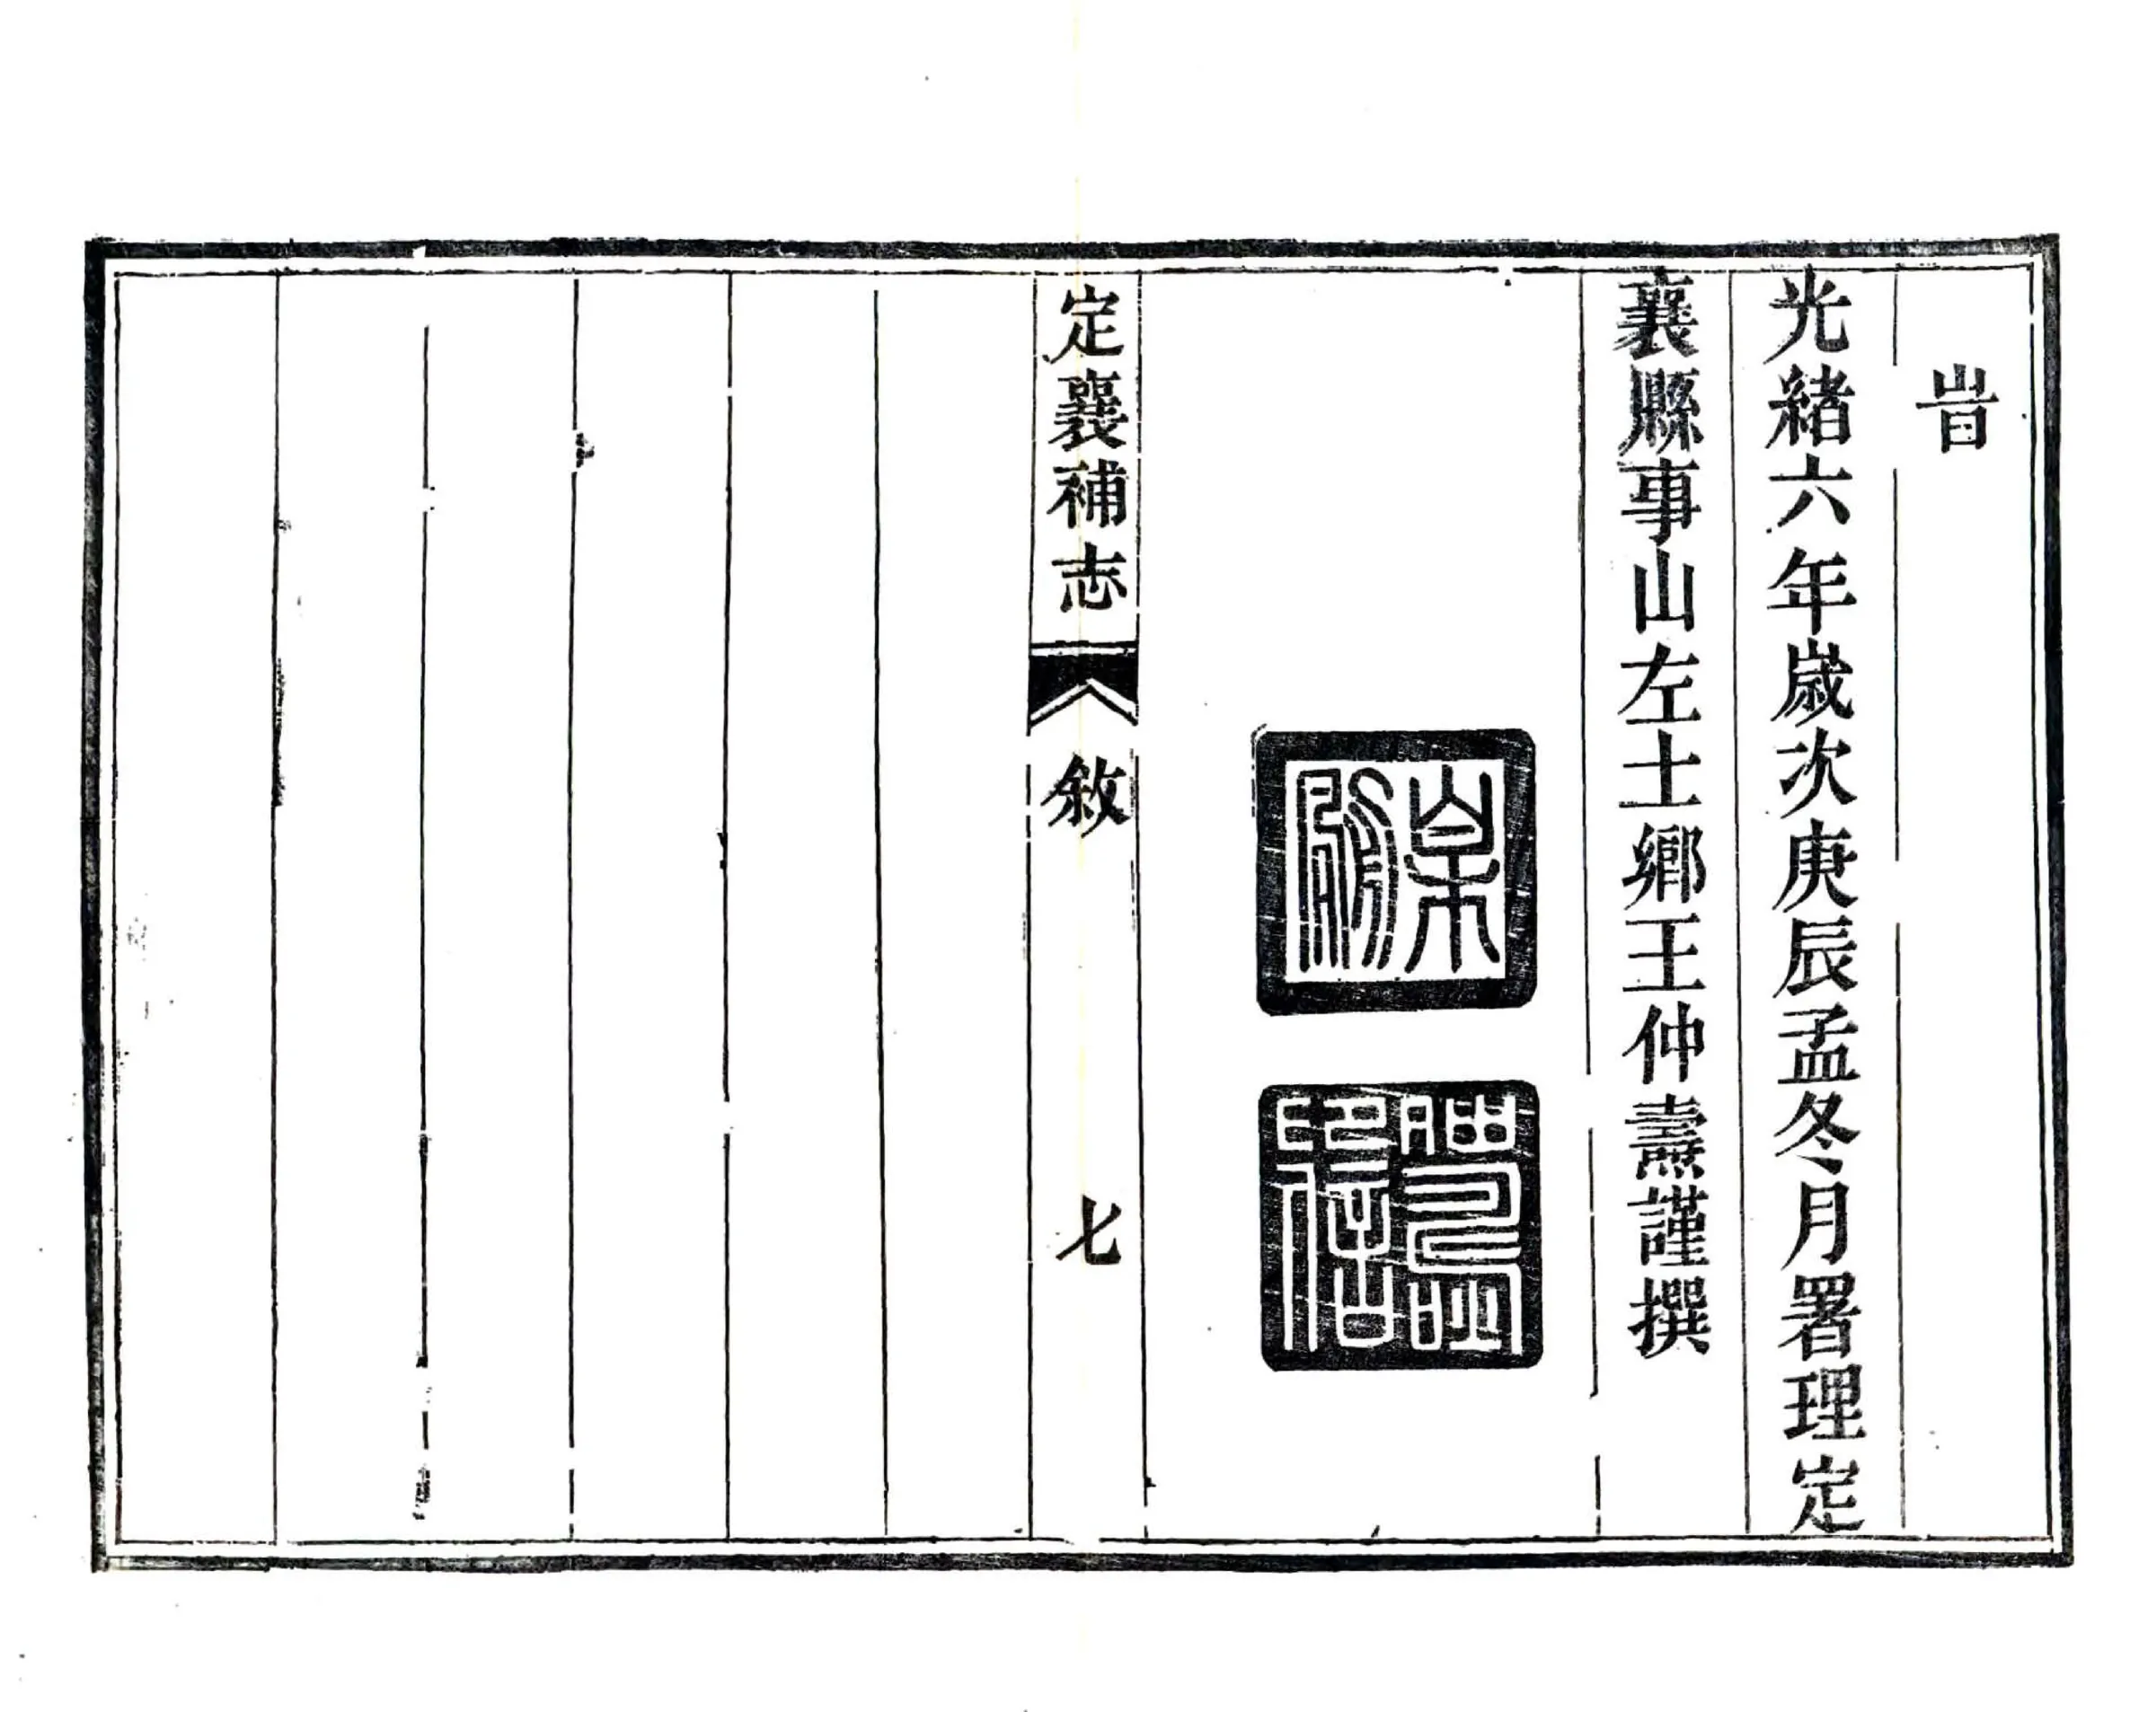 旹
光緒六年歲次庚辰孟冬月署理定
襄縣事山左士鄉王仲燾謹撰
定襄補志
敘
七